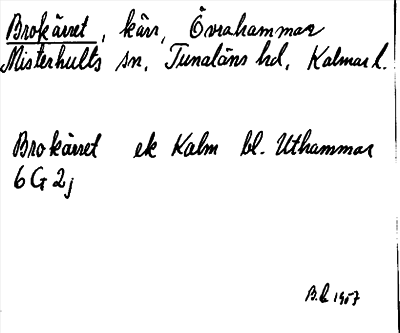 Brokärret, kärr, Övrahammar
Misterhults sn, Tunaläns hd, Kalmar l.
Brokärret ek Kalm bl. Uthammar
6 G 2j
1957